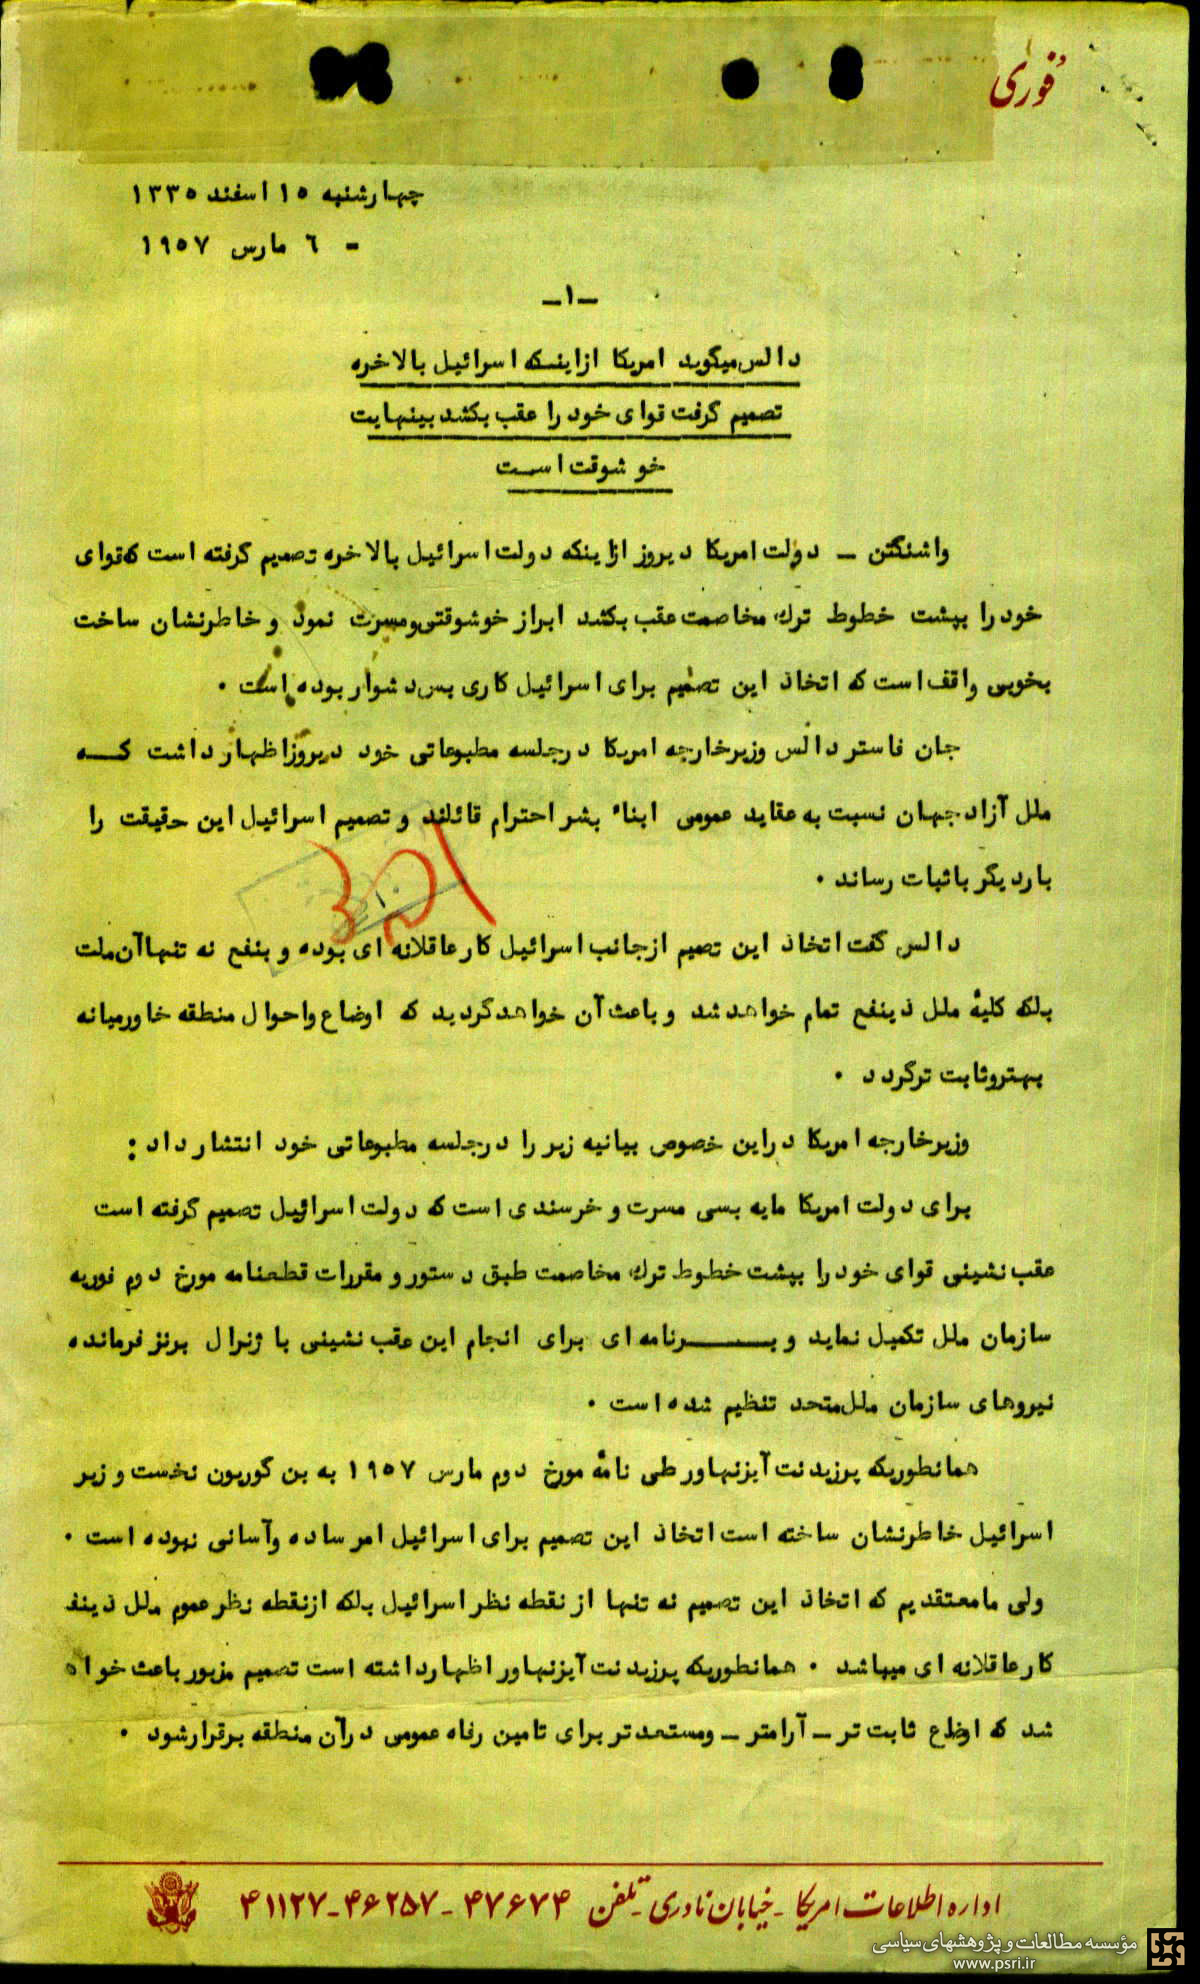 فوری
چهارشنبه ۱۵ اسفند ۱۳۳۵
- ۶ مارس ۱۹۵۷
-۱-
دالس میگوید امریکا از اینکه اسرائیل بالاخره
تصمیم گرفت قوای خود را عقب بکشد بینهایت
خوشوقت است
واشنگتن - دولت امریکا دیروز ازاینکه دولت اسرائیل بالاخره تصمیم گرفته است که قوای
خود را بپشت خطوط ترک مخاصمت عقب بکشد ابراز خوشوقتی ومسرت نمود و خاطرنشان ساخت
بخوبی واقف است که اتخاذ این تصمیم برای اسرائیل کاری بس دشوار بوده است .
جان فاستر دالس وزیرخارجه امریکا درجلسه مطبوعاتی خود دیروز اظهار داشت کـــه
ملل آزاد جهان نسبت به عقاید عمومی ابناء بشر احترام قائلند و تصمیم اسرائیل این حقیقت را
باردیگر باثبات رساند .
دالس گفت اتخاذ این تصمیم ازجانب اسرائیل کار عاقلانه ای بوده و بنفع نه تنها آن ملت
بلکه کلیهٔ ملل ذینفع تمام خواهد شد و باعث آن خواهد گردید که اوضاع واحوال منطقه خاورمیانه
بهتروثابت ترگردد .
وزیرخارجه امریکا دراین خصوص بیانیه زیر را درجلسه مطبوعاتی خود انتشار داد :
برای دولت امریکا مایه بسی مسرت و خرسندی است که دولت اسرائیل تصمیم گرفته است
عقب نشینی قوای خود را بپشت خطوط ترک مخاصمت طبق دستور و مقررات قطعنامه مورخ دوم فوریه
سازمان ملل تکمیل نماید و بـــــرنامه ای برای انجام این عقب نشینی با ژنرال برنز فرمانده
نیروهای سازمان ملل متحد تنظیم شده است .
همانطوریکه پرزیدنت آیزنهاور طی نامهٔ مورخ دوم مارس ۱۹۵۷ به بن گوریون نخست وزیر
اسرائیل خاطرنشان ساخته است اتخاذ این تصمیم برای اسرائیل امر ساده وآسانی نبوده است .
ولی مامعتقدیم که اتخاذ این تصمیم نه تنها از نقطه نظر اسرائیل بلکه ازنقطه نظر عموم ملل ذینف
کارعاقلانه ای میباشد . همانطوریکه پرزیدنت آیزنهاور اظهارداشته است تصمیم مزبور باعث خواه
شد که اوضاع ثابت تر - آرامتر - ومستعد تر برای تامین رفاه عمومی درآن منطقه برقرارشود .
اداره اطلاعات امریکا - خیابان نادری - تلفن ۴۷۶۷۴ - ۴۶۲۵۷ - ۴۱۱۲۷
مؤسسه مطالعات و پژوهشهای سیاسی
www.psri.ir